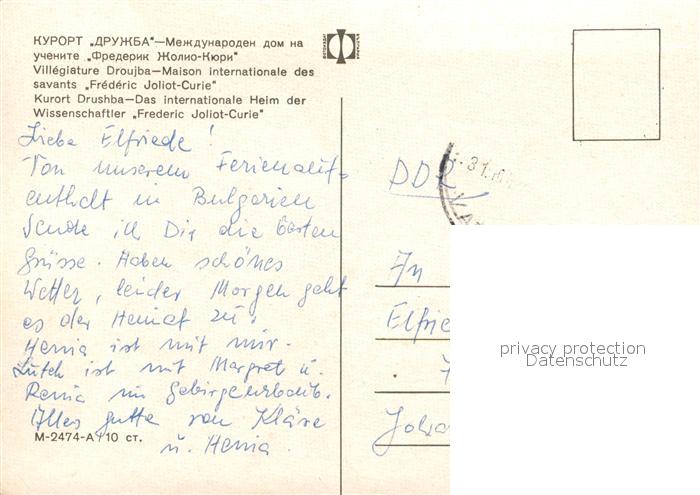 КУРОРТ „ДРУЖБА"—Международен дом на
учените „Фредерик Жолио-Кюри"
Villégiature Droujba—Maison internationale des
savants „Frédéric Joliot-Curie"
Kurort Drushba—Das internationale Heim der
Wissenschaftler „Frederic Joliot-Curie"
Liebe Elfriede!
Von unserem Ferienauf-
enthalt in Bulgarien
sende ich Dir die besten
Grüsse. Haben schönes
Wetter, leider Morgen geht
es der Heimat zu.
Henia ist mit mir.
ist mit Margret u.
Renia im Gebirgsurlaub.
Alles gutte von Kläre
u. Henia.
М-2474-А 10 ст.
31.
DDR
An
Elfrie
privacy protection
Datenschutz